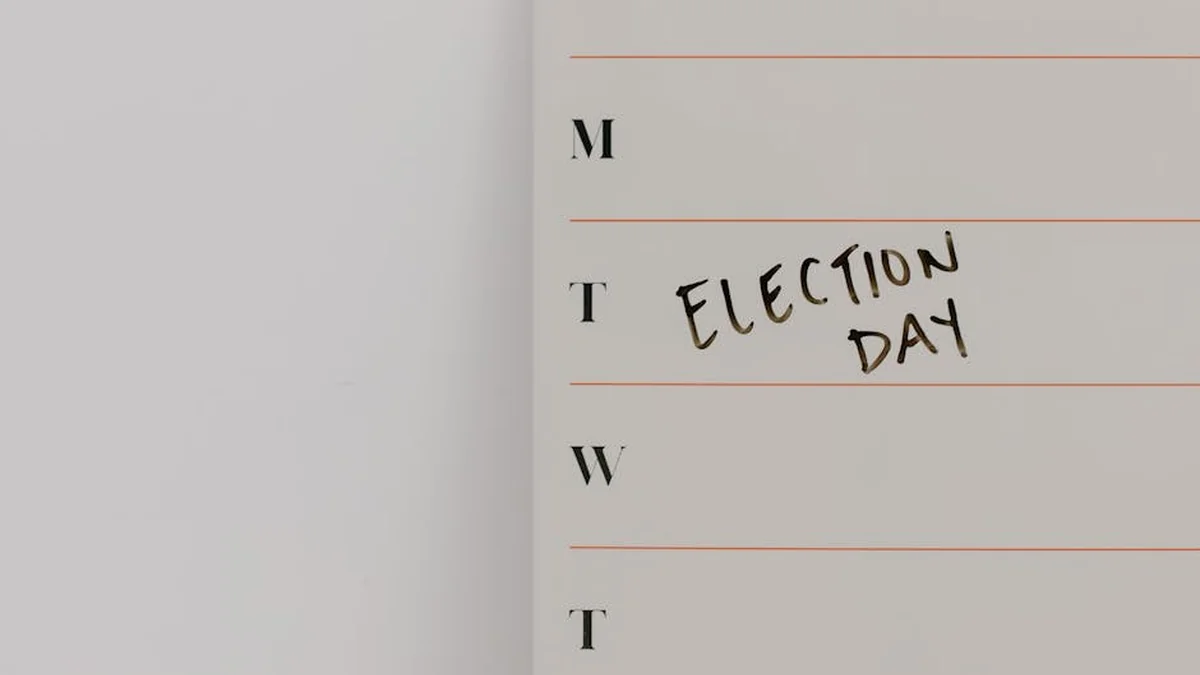 M
T ELECTION
DAY
W
T